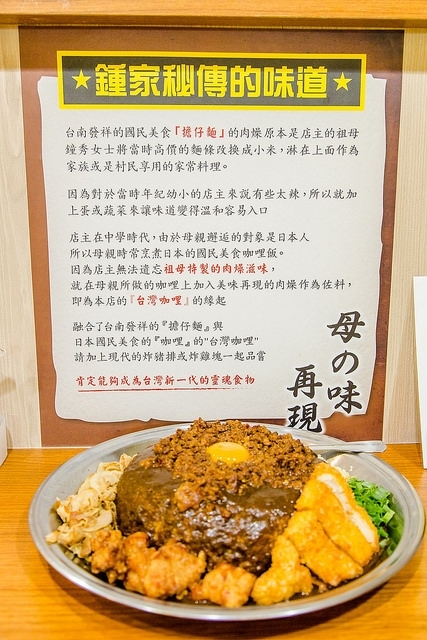 ★鍾家秘傳的味道★
台南發祥的國民美食『擔仔麵』的肉燥原本是店主的祖母
鍾秀女士將當時高價的麵條改換成小米，淋在上面作為
家族或是村民享用的家常料理。
因為對於當時年紀幼小的店主來說有些太辣，所以就加
上蛋或蔬菜來讓味道變得溫和容易入口
店主在中學時代，由於母親邂逅的對象是日本人
所以母親時常烹煮日本的國民美食咖哩飯。
因為店主無法遺忘祖母特製的肉燥滋味，
就在母親所做的咖哩上加入美味再現的肉燥作為佐料，
即為本店的『台灣咖哩』的緣起
融合了台南發祥的『擔仔麵』與
日本國民美食的『咖哩』的"台灣咖哩"
請加上現代的炸豬排或炸雞塊一起品嘗
肯定能夠成為台灣新一代的靈魂食物
母の味
再現